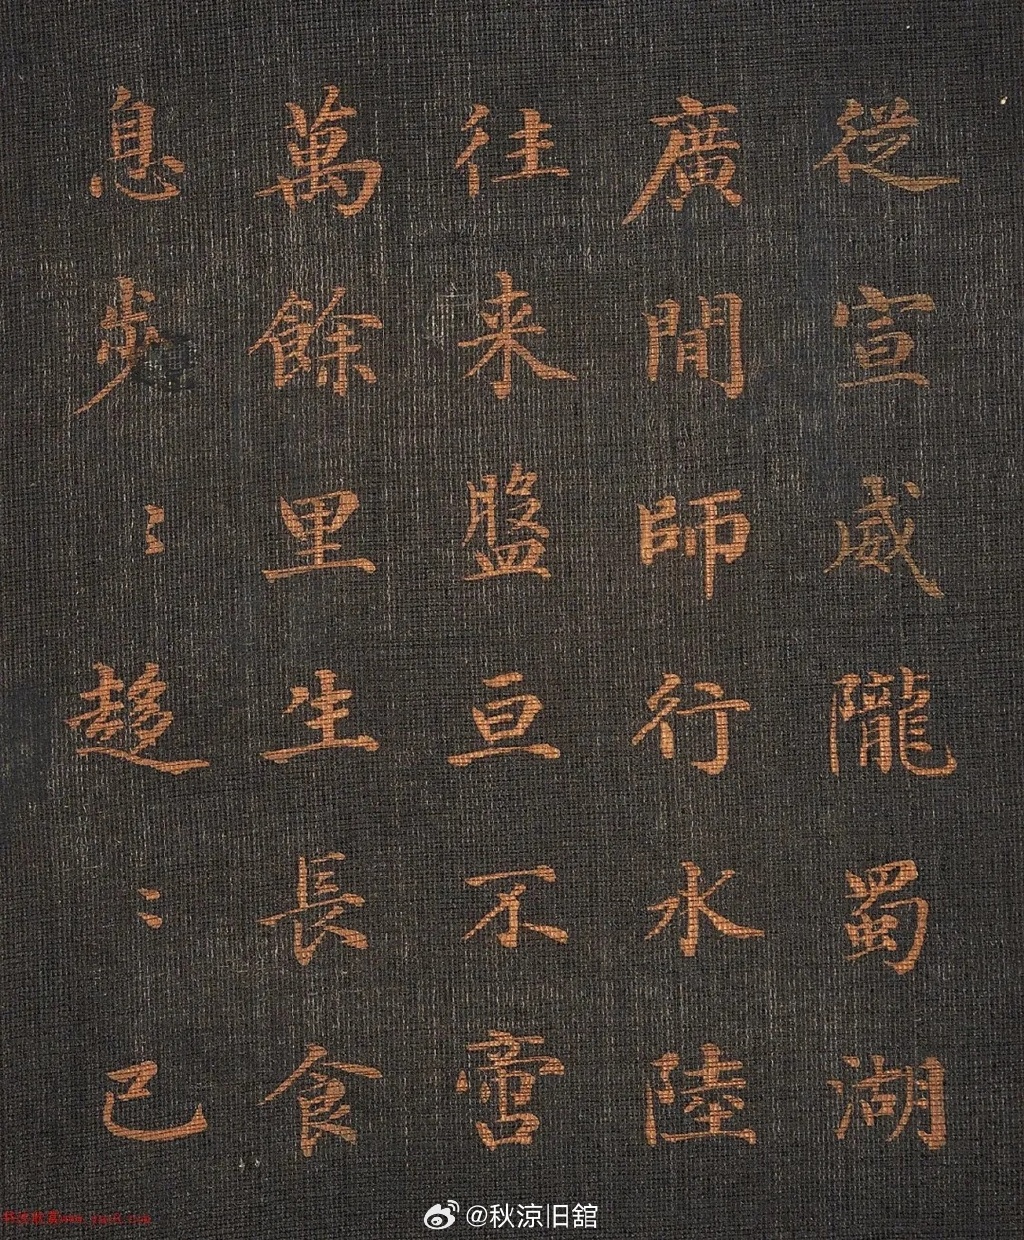 從宣威隴蜀湖
廣間師行水陸
往来盤亘不啻
萬餘里生長食
息步〻趍〻已
@秋涼旧舘